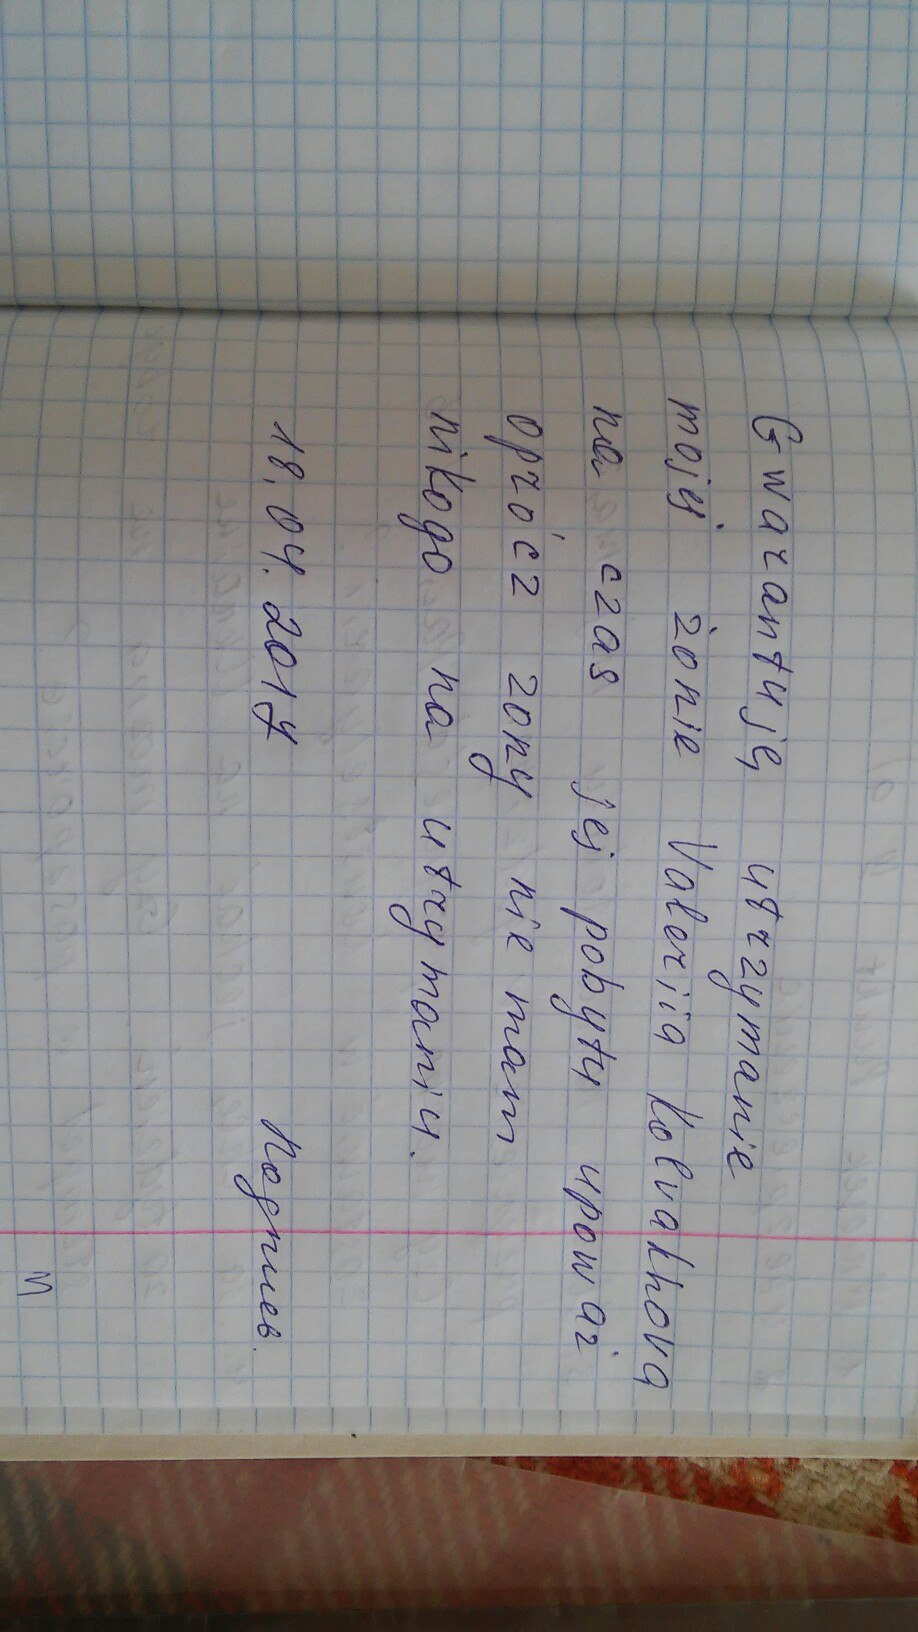 Gwarantuję utrzymanie
mojej żonie Valeriią Kolvakhovą
na czas jej pobytu upoważ
oprócz żony nie mam
nikogo na utrzymaniu.
18.04.2017 Подпись.